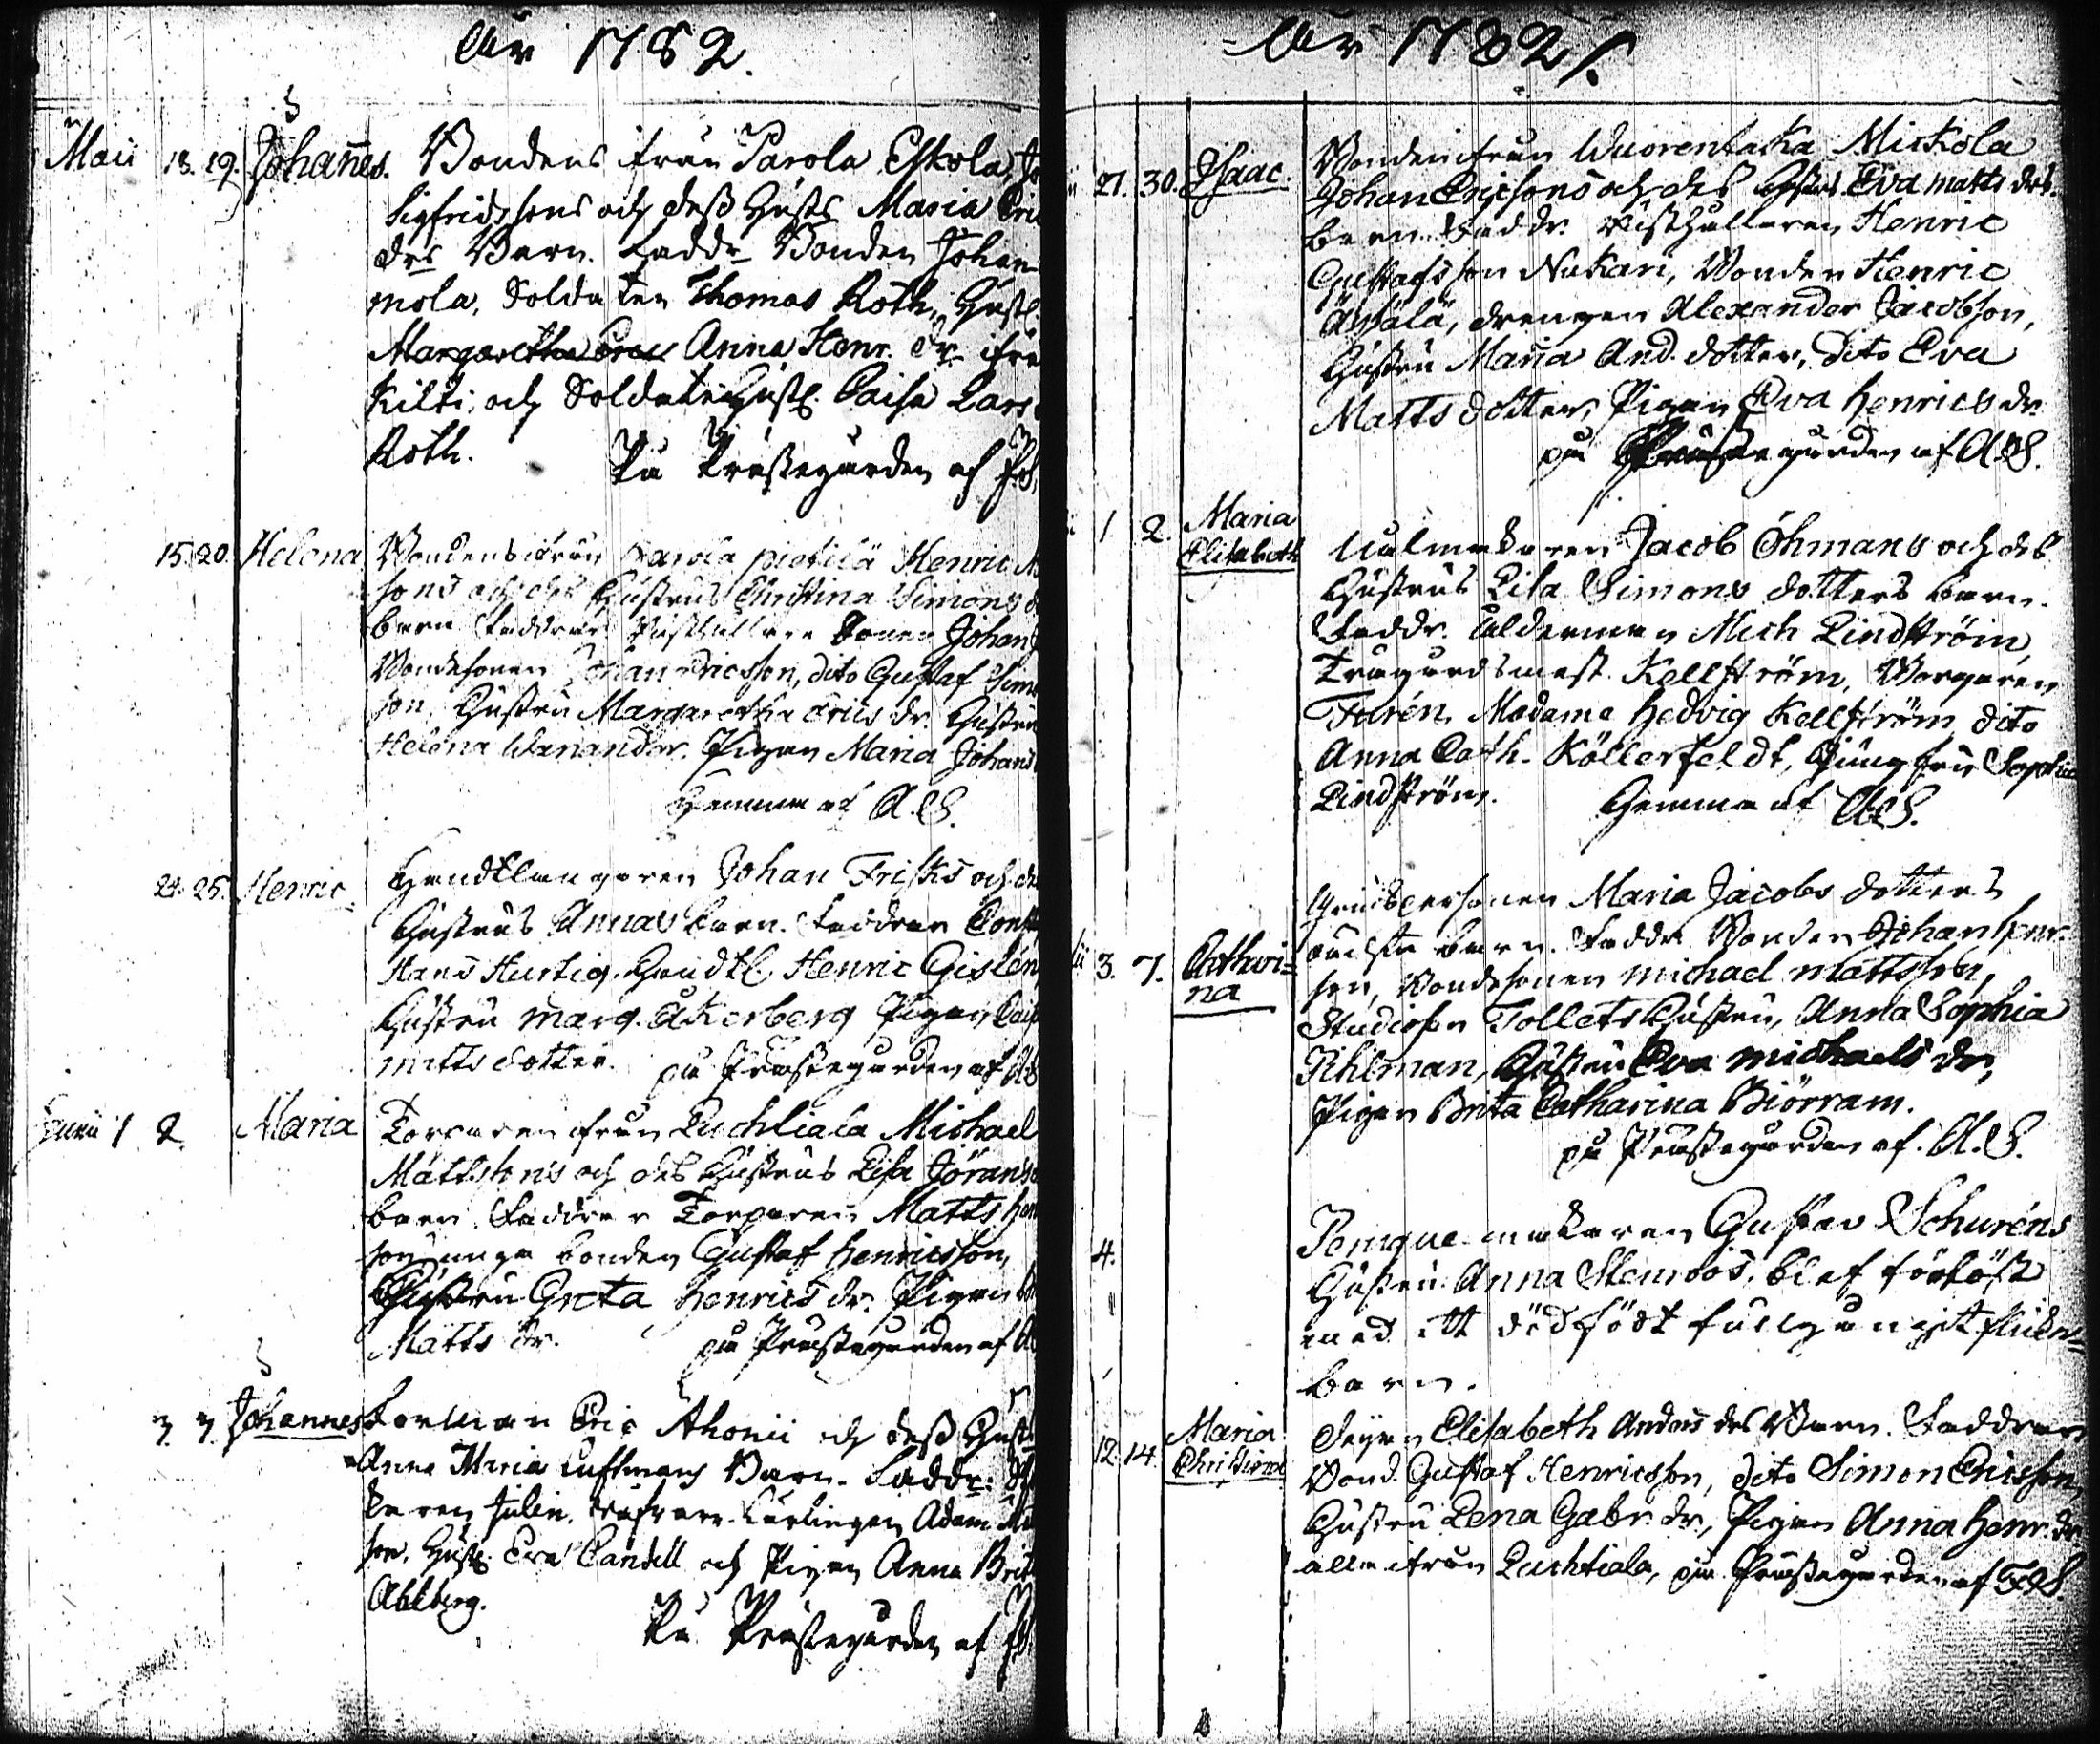 År 1782.
Maii 18. 19. Johannes. Bondens ifrån Parola Eskola, Jo
Sigfridssons och dess Hustr Maria Eric
drs Barn. Faddr Bonden Johan
mola, Soldaten Thomas Roth, Hustr.
Margaretha Eric Anna Henr. dr ifrå
Kilti, och Soldate Hustr. Caisa Lars
Roth. På Prästegården af
15. 20. Helena Bondens ifrån Parola pietilä Henric
sons och des Hustrus Christina Simons
barn Faddrar Rusthållare Sonen Johan
Bondesonen Johan Ericsson, dito Gustaf Sim
son, Hustru Margaretha Erics dr. Hustru
Helena Wanander. Pigan Maria Johans
Hemma af A.S.
24. 25. Henric Handtlangaren Johan Frisks och des
Hustrus Annas barn. Faddrar Const
Hans Hurtig. Handtl. Henric Gislén,
Hustru Marg. Åkerberg Pigan Cais
matts dotter. på Prästegården af AS
Junii 1 2. Maria Torparen ifrån Luchtiala Michael
Mattsons och des Hustrus Lisa Jörans
barn. Faddrar Torparen Matts Hen
son, unga bonden Gustaf Henricsson,
Hustru Greta Henrics dr. Pigan
Matts dr. på Prästegården af
3. 3. Johannes Forman Eric Ahonii och dess Hust
Anna Maria Luftmans Barn. Faddr:
karen Julin, Adam
son. Hustr. Eva Candell och Pigan Anna Brit
Ahlberg.
På Prästegården af
År 1782.
27. 30. Isaac. Bonden ifrån Wuorentaka Mickola
Johan Ericsons och des Hustrus Eva matts drs
barn. Faddr. Rusthållaren Henric
Gustafsson Nakari, Bonden Henric
Äyälä, drengen Alexander Jacobson,
Hustru Maria And. dotter, Dito Eva
Matts dotter, Pigan Eva Henrics dr.
på Prästegården af AS.
1. 2. Maria Elisabeth Jacob Öhmans och des
Hustrus Lisa Simons dotters barn.
Faddr. ålderman Mich Lindström,
Trägårdsmest. Kellström, Borgaren
Thurén, Madame Hedvig Kellström, dito
Anna Cath. Köllerfeldt, Jungfru Sophia
Lindström. Hemma af AS.
3. 7. Cathri=
na
Qvinspersonen Maria Jacobs dotters
oächta barn. Faddr Bonden Johan Henr.
son, Bondesonen Michael Mattsson,
Studiosen Tollets Hustru, Anna Sophia
Pihlman, Hustru Eva Michaels dr,
Pigan Brita Catharina Biörram.
på Prästegården af. A.S.
4. Perruque makaren Gustav Schuréns
Hustru Anna Stenroos, blef förlöst
med ett dödfödt fullgångit flicke=
barn.
12. 14. Maria Christina Pigan Elisabeth Anders drs Barn. Faddrar
Bond. Gustaf Henricsson, dito Simon Ericsson,
Hustru Lena Gabr. dr, Pigan Anna Henr. dr
alla ifrån Luchtiala, på Prästegården af